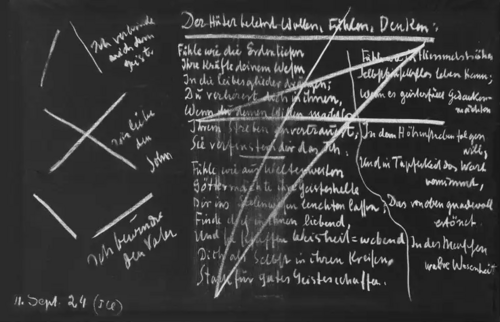 Der Hüter belehrt Wollen, Fühlen, Denken:
Fühle wie die Erdentiefen
Ihre Kräfte deinem Wesen
In die Leibesglieder drängen;
Du verlierst dich in ihnen,
Wenn du deinen Willen machtlos
Ihrem Streben anvertraust,
Sie verfinstern dir das Ich.
Fühle wie aus Weltenweiten
Göttermächte ihre Geisteshelle
Dir ins Seelenwesen leuchten lassen;
Finde dich in ihnen liebend,
Und sie schaffen Weisheit=webend
Dich als Selbst in ihren Kreisen
Stark für gutes Geistesschaffen.
Fühle wie in Himmelshöhen
Selbstsein selbstlos leben kann:
Wenn es geisterfüllt Gedanken=
mächten
In dem Höhenstreben folgen
will,
Und in Tapferkeit das Wort
vernimmt,
Das von oben gnadevoll
ertönet
In des Menschen
wahre Wesenheit
Ich verbinde
mich dem
Geist.
Ich liebe
den
Sohn.
Ich bewundre
den Vater
11. Sept. 24